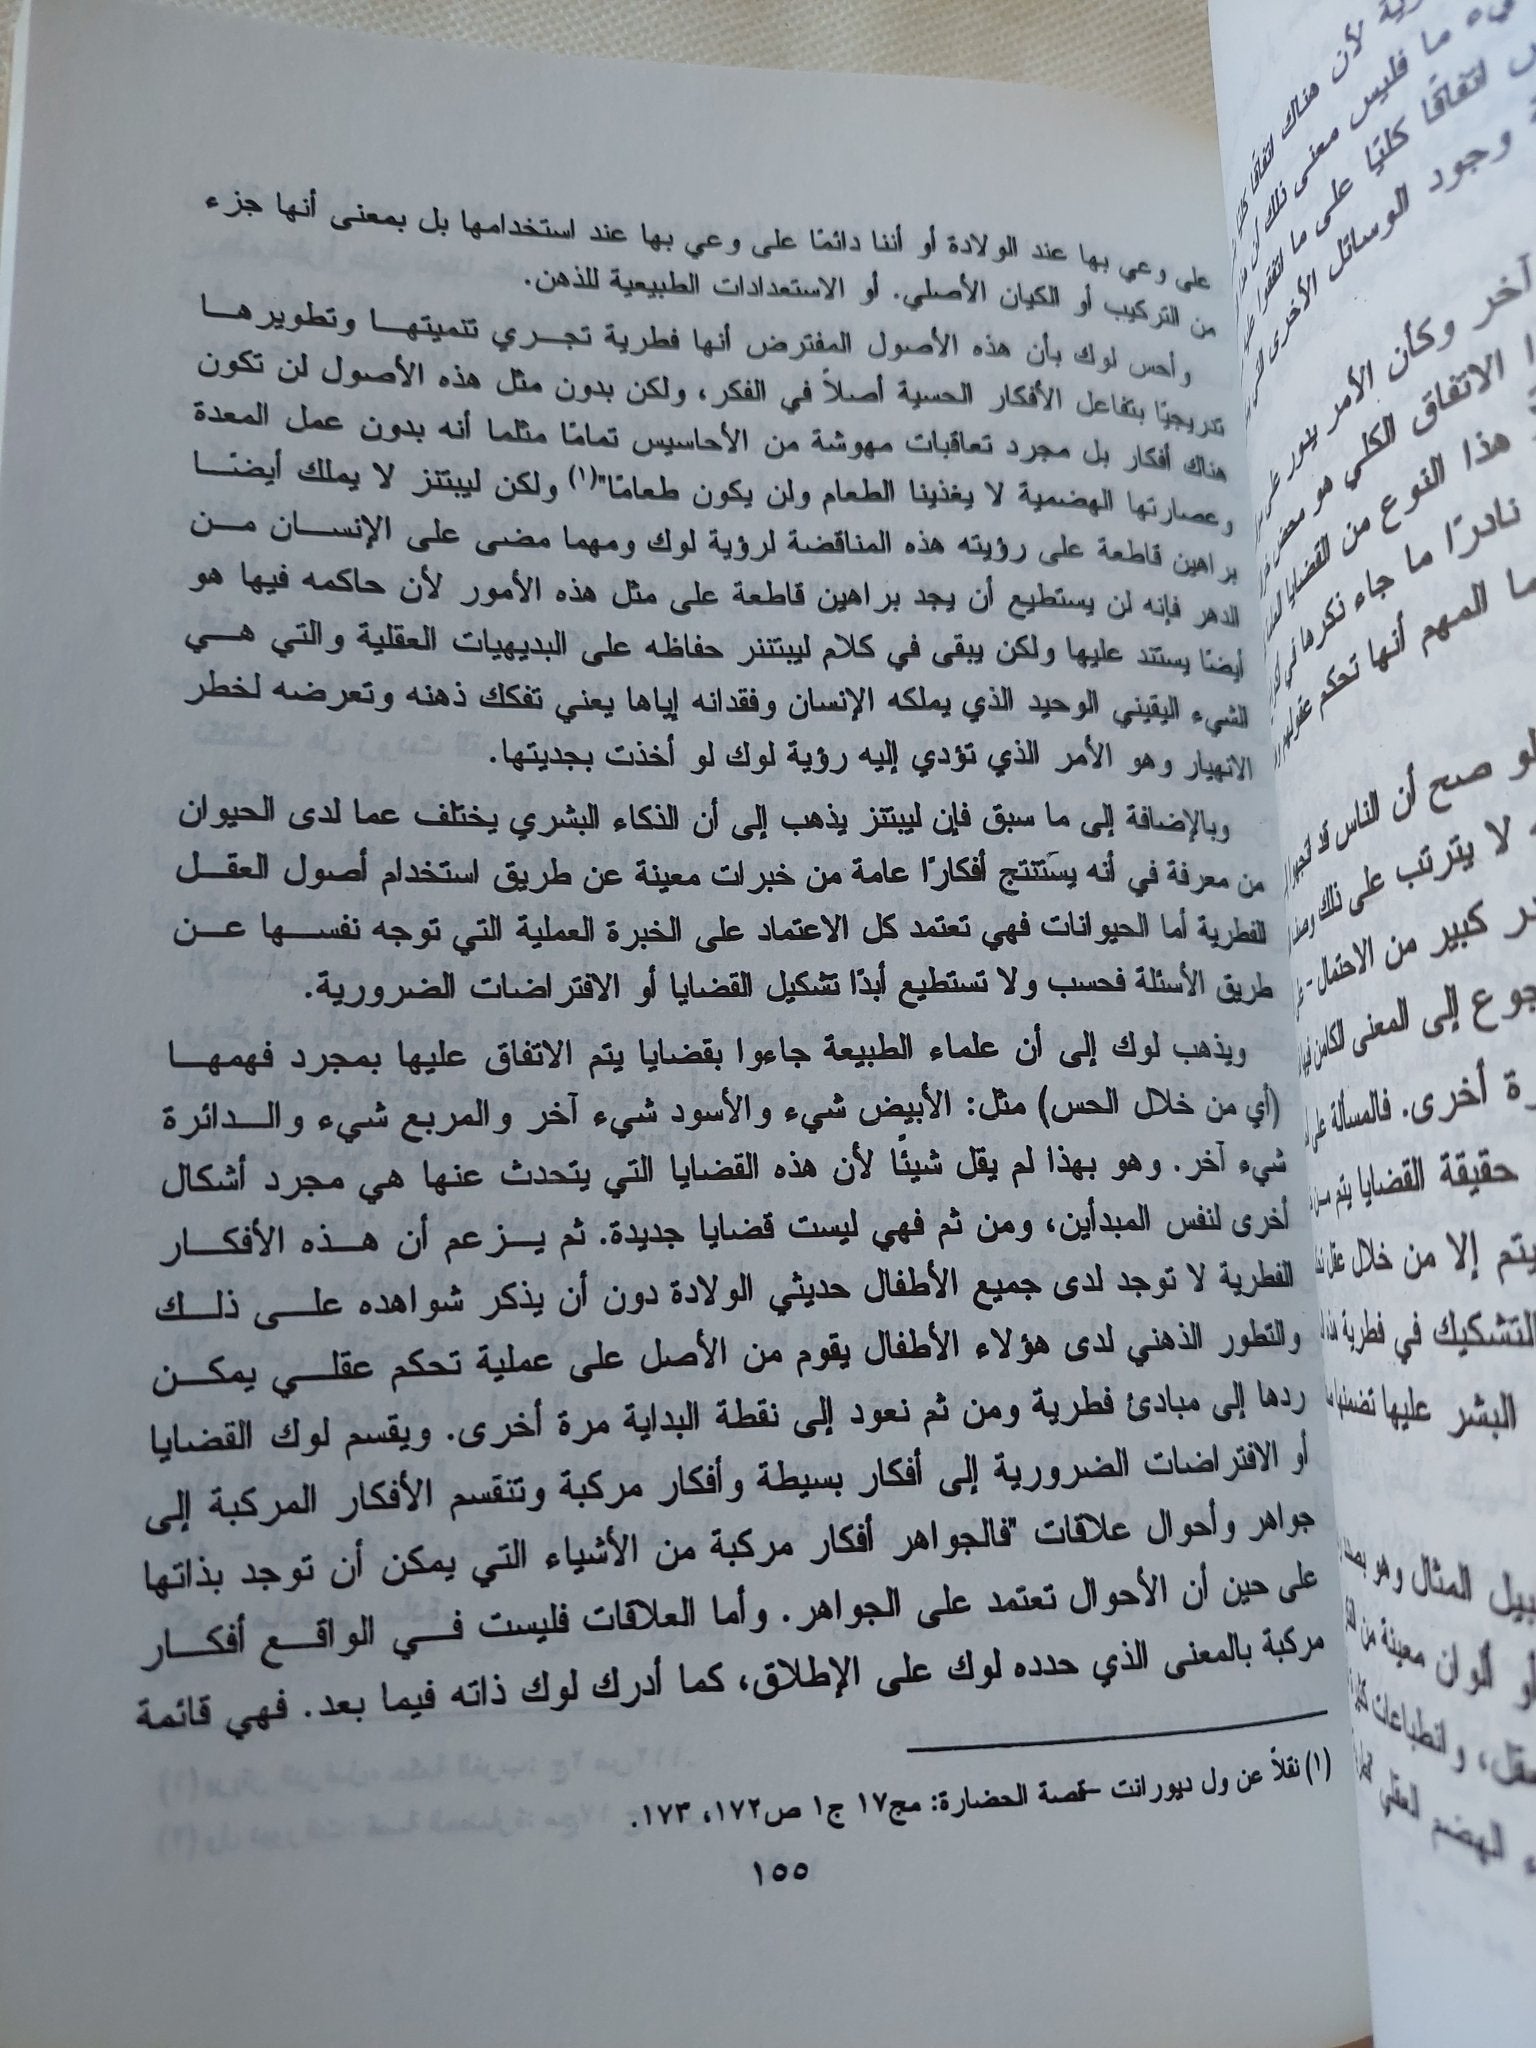 على وعي بها عند الولادة أو أننا دائمًا على وعي بها عند استخدامها بل بمعنى أنها جزء
من التركيب أو الكيان الأصلي. أو الاستعدادات الطبيعية للذهن.
وأحس لوك بأن هذه الأصول المفترض أنها فطرية تجري تنميتها وتطويرها
تدريجيًا بتفاعل الأفكار الحسية أصلاً في الفكر، ولكن بدون مثل هذه الأصول لن تكون
هناك أفكار بل مجرد تعاقبات مهوشة من الأحاسيس تمامًا مثلما أنه بدون عمل المعدة
وعصارتها الهضمية لا يغذينا الطعام ولن يكون طعامًا"(١) ولكن ليبتنز لا يملك أيضًا
براهين قاطعة على رؤيته هذه المناقضة لرؤية لوك ومهما مضى على الإنسان من
الدهر فإنه لن يستطيع أن يجد براهين قاطعة على مثل هذه الأمور لأن حاكمه فيها هو
أيضًا يستند عليها ولكن يبقى في كلام ليبتننر حفاظه على البديهيات العقلية والتي هي
الشيء اليقيني الوحيد الذي يملكه الإنسان وفقدانه إياها يعني تفكك ذهنه وتعرضه لخطر
الانهيار وهو الأمر الذي تؤدي إليه رؤية لوك لو أخذت بجديتها.
وبالإضافة إلى ما سبق فإن ليبتنز يذهب إلى أن الذكاء البشري يختلف عما لدى الحيوان
من معرفة في أنه يسَتنتج أفكارًا عامة من خبرات معينة عن طريق استخدام أصول العقل
الفطرية أما الحيوانات فهي تعتمد كل الاعتماد على الخبرة العملية التي توجه نفسها عن
طريق الأسئلة فحسب ولا تستطيع أبدًا تشكيل القضايا أو الافتراضات الضرورية.
ويذهب لوك إلى أن علماء الطبيعة جاءوا بقضايا يتم الاتفاق عليها بمجرد فهمها
(أي من خلال الحس) مثل: الأبيض شيء والأسود شيء آخر والمربع شيء والدائرة
شيء آخر. وهو بهذا لم يقل شيئًا لأن هذه القضايا التي يتحدث عنها هي مجرد أشكال
أخرى لنفس المبدأين، ومن ثم فهي ليست قضايا جديدة. ثم يزعم أن هذه الأفكار
الفطرية لا توجد لدى جميع الأطفال حديثي الولادة دون أن يذكر شواهده على ذلك
والتطور الذهني لدى هؤلاء الأطفال يقوم من الأصل على عملية تحكم عقلي يمكن
ردها إلى مبادئ فطرية ومن ثم نعود إلى نقطة البداية مرة أخرى. ويقسم لوك القضايا
أو الافتراضات الضرورية إلى أفكار بسيطة وأفكار مركبة وتنقسم الأفكار المركبة إلى
جواهر وأحوال علاقات "فالجواهر أفكار مركبة من الأشياء التي يمكن أن توجد بذاتها
على حين أن الأحوال تعتمد على الجواهر. وأما العلاقات فليست في الواقع أفكار
مركبة بالمعنى الذي حدده لوك على الإطلاق، كما أدرك لوك ذاته فيما بعد. فهي قائمة
(١) نقلاً عن ول ديورانت -قصة الحضارة: مج١٧ ج١ ص١٧٢، ١٧٣.
١٥٥
لأن هناك اتفاقًا
ما فليس معنى ذلك أن
اتفاقًا كليًا على ما اتفقوا
وجود الوسائل الأخرى
آخر وكأن الأمر يدور على
الاتفاق الكلي هو محض
هذا النوع من القضايا
نادرًا ما جاء ذكرها في
المهم أنها تحكم عقولهم
لو صح أن الناس قد
لا يترتب على ذلك
كبير من الاحتمال
إلى المعنى الكامن فيها
أخرى. فالمسألة على
حقيقة القضايا يتم من
يتم إلا من خلال عقل
التشكيك في فطرية
البشر عليها تضمنها
المثال وهو
ألوان معينة من
وانطباعات
الهضم العقلي